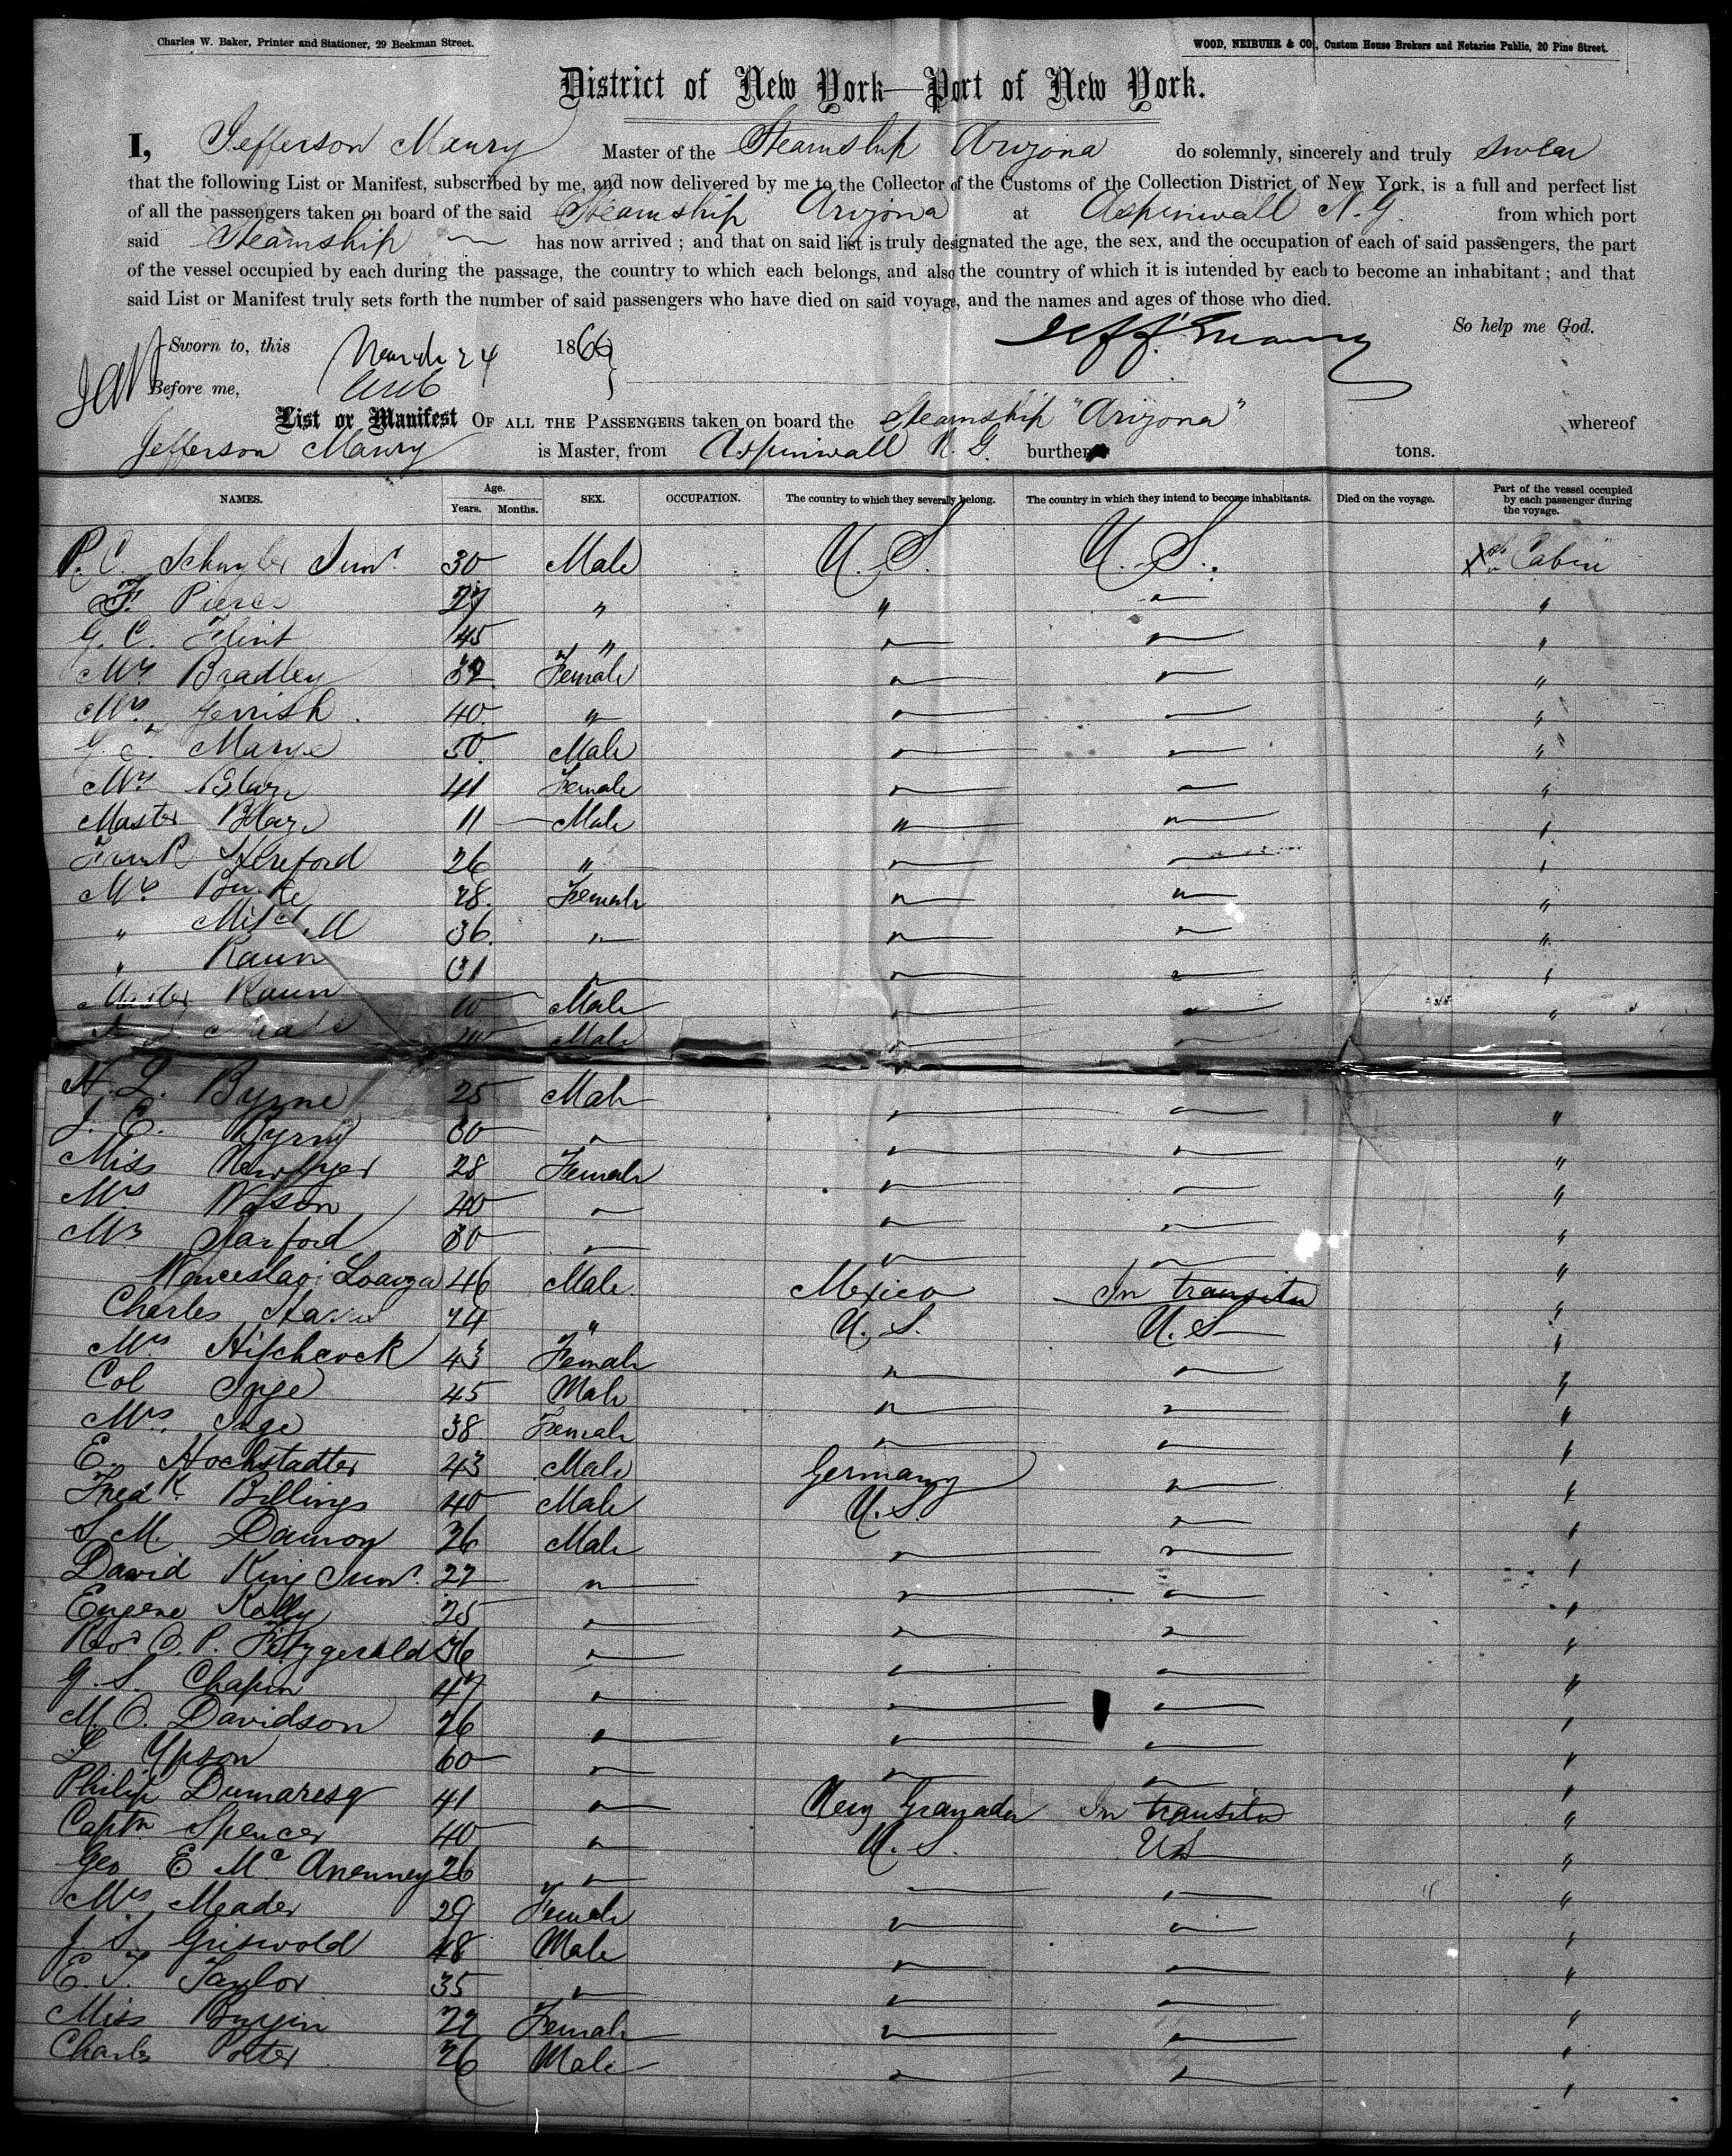 Charles W. Baker, Printer and Stationer, 29 Beekman Street.
WOOD, NEIBUHR & CO., Custom House Brokers and Notaries Public, 20 Pine Street.
District of New York—Port of New York.
I, Jefferson Maury Master of the Steamship Arizona do solemnly, sincerely and truly swear
that the following List or Manifest, subscribed by me, and now delivered by me to the Collector of the Customs of the Collection District of New York, is a full and perfect list
of all the passengers taken on board of the said Steamship Arizona at Aspinwall N. G. from which port
said Steamship has now arrived ; and that on said list is truly designated the age, the sex, and the occupation of each of said passengers, the part
of the vessel occupied by each during the passage, the country to which each belongs, and also the country of which it is intended by each to become an inhabitant ; and that
said List or Manifest truly sets forth the number of said passengers who have died on said voyage, and the names and ages of those who died.
So help me God.
Sworn to, this March 24 1866 Jeff. Maury
Before me,
List or Manifest OF ALL THE PASSENGERS taken on board the Steamship "Arizona" whereof
Jefferson Maury is Master, from Aspinwall N. G. burthen tons.
NAMES. Age. Years. Months. SEX. OCCUPATION. The country to which they severally belong. The country in which they intend to become inhabitants. Died on the voyage. Part of the vessel occupied by each passenger during the voyage.
P. C. Schuyler Junr. 30 Male U. S. U. S. Cabin
F. Pierce 27 " " "
G. C. Flint 45 " "
Mrs Bradley 32 Female "
Mrs. Gerrish 40 " "
G. T. Marye 50 Male "
Mrs 41 Female "
Master 11 Male " "
Frank Hereford 26 " "
Mrs Burke 28 Female "
" Mitchell 36 "
" Raun 31 "
Master Raun 10 Male "
Male
H. L. Byrne 25 Male "
J. E. Byrne 30 "
Miss 28 Female "
Mrs Watson 40 "
Mrs Sanford 30 "
Wenceslao Loaiza 46 Male Mexico In transitu "
Charles 24 " U. S. U. S "
Mrs Hitchcock 43 Female "
Col Inge 45 Male "
Mrs. Inge 38 Female "
E. Hochstadter 43 Male Germany "
Fredk. Billings 40 Male U. S. "
S. M. Damon 26 Male "
David King Junr. 22 "
Eugene Kelly 25 "
Revd O. P. Fitzgerald 36 "
G. S. Chapin 47 "
M. O. Davidson 26 "
L Upson 60 "
Philip Dumaresq 41 New Granada In transitu "
Captn Spencer 40 U. S. US "
Geo E Mc 26 "
Mrs Meader 29 Female "
J. S. Griswold 48 Male "
E. T. Taylor 35 "
Miss 22 Female "
Charles Porter 26 Male "